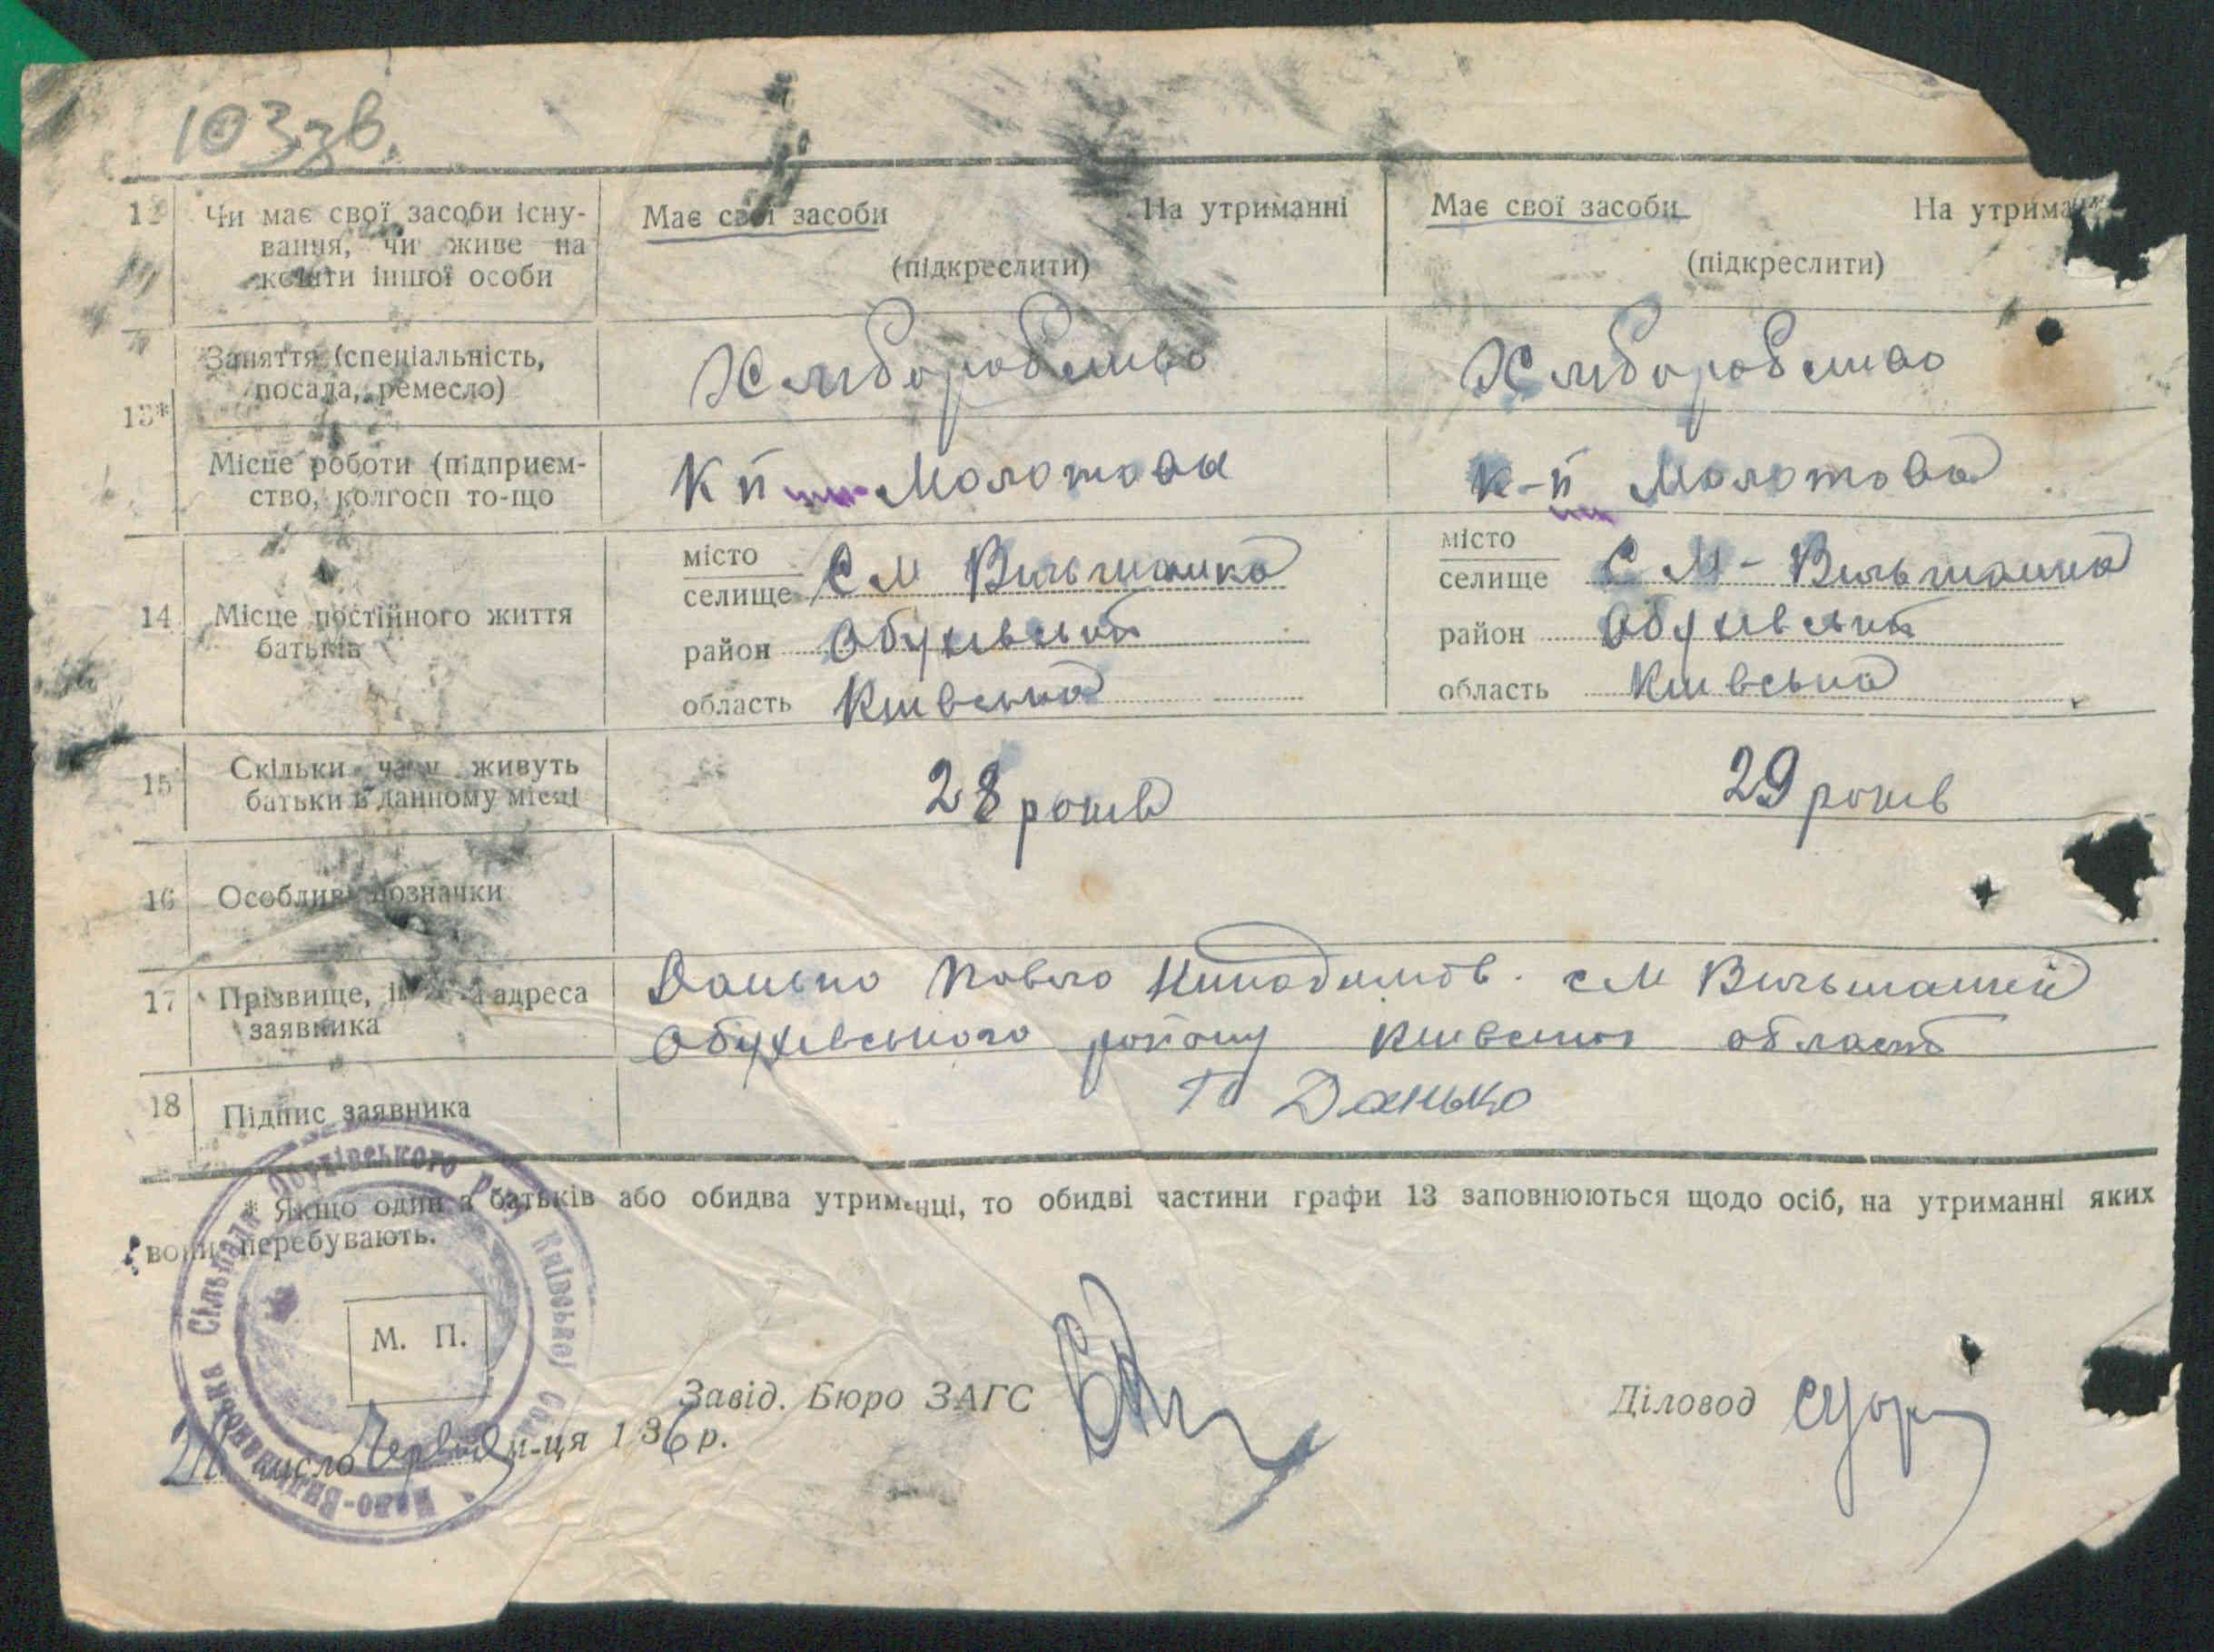 103зв.
12 Чи має свої засоби існу-
вання, чи живе на
кошти іншої особи
Має свої засоби На утриманні
(підкреслити)
Має свої засоби На утрима
(підкреслити)
13*
Заняття (спеціальність,
посада, ремесло)
Хліборобство
Хліборобство
Місце роботи (підприєм-
ство, колгосп то-що
К п Молотова
К-п Молотова
14 Місце постійного життя
батьків
місто
селище СМ Вильшанка
район Обухівський
область Київська
місто
селище С М - Вильшанка
район Обухівський
область Київська
15 Скільки часу живуть
батьки в данному місці
28 років
29 років
16 Особливі позначки
17 Прізвище, ім'я і адреса
заявника
Данько Павло см Вильшанки
Обухівського району Київської області
18 Підпис заявника
П Данько
* Якщо один з батьків або обидва утриманці, то обидві частини графи 13 заповнюються щодо осіб, на утриманні яких
вони перебувають.
Обухівського р-ну Київської Обл.
Сільрада
М. П.
Завід. Бюро ЗАГС
Діловод
число Червня м-ця 1 36 р.